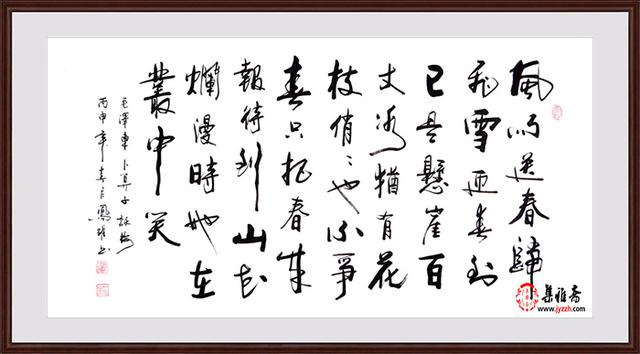 風雨送春歸
飛雪迎春到
已是懸崖百
丈冰猶有花
枝俏〻也不爭
春只把春來
報待到山花
爛漫時她在
叢中笑
毛澤東卜算子詠梅
丙申年春月鳳
集雅斋
www.jyzzh.com